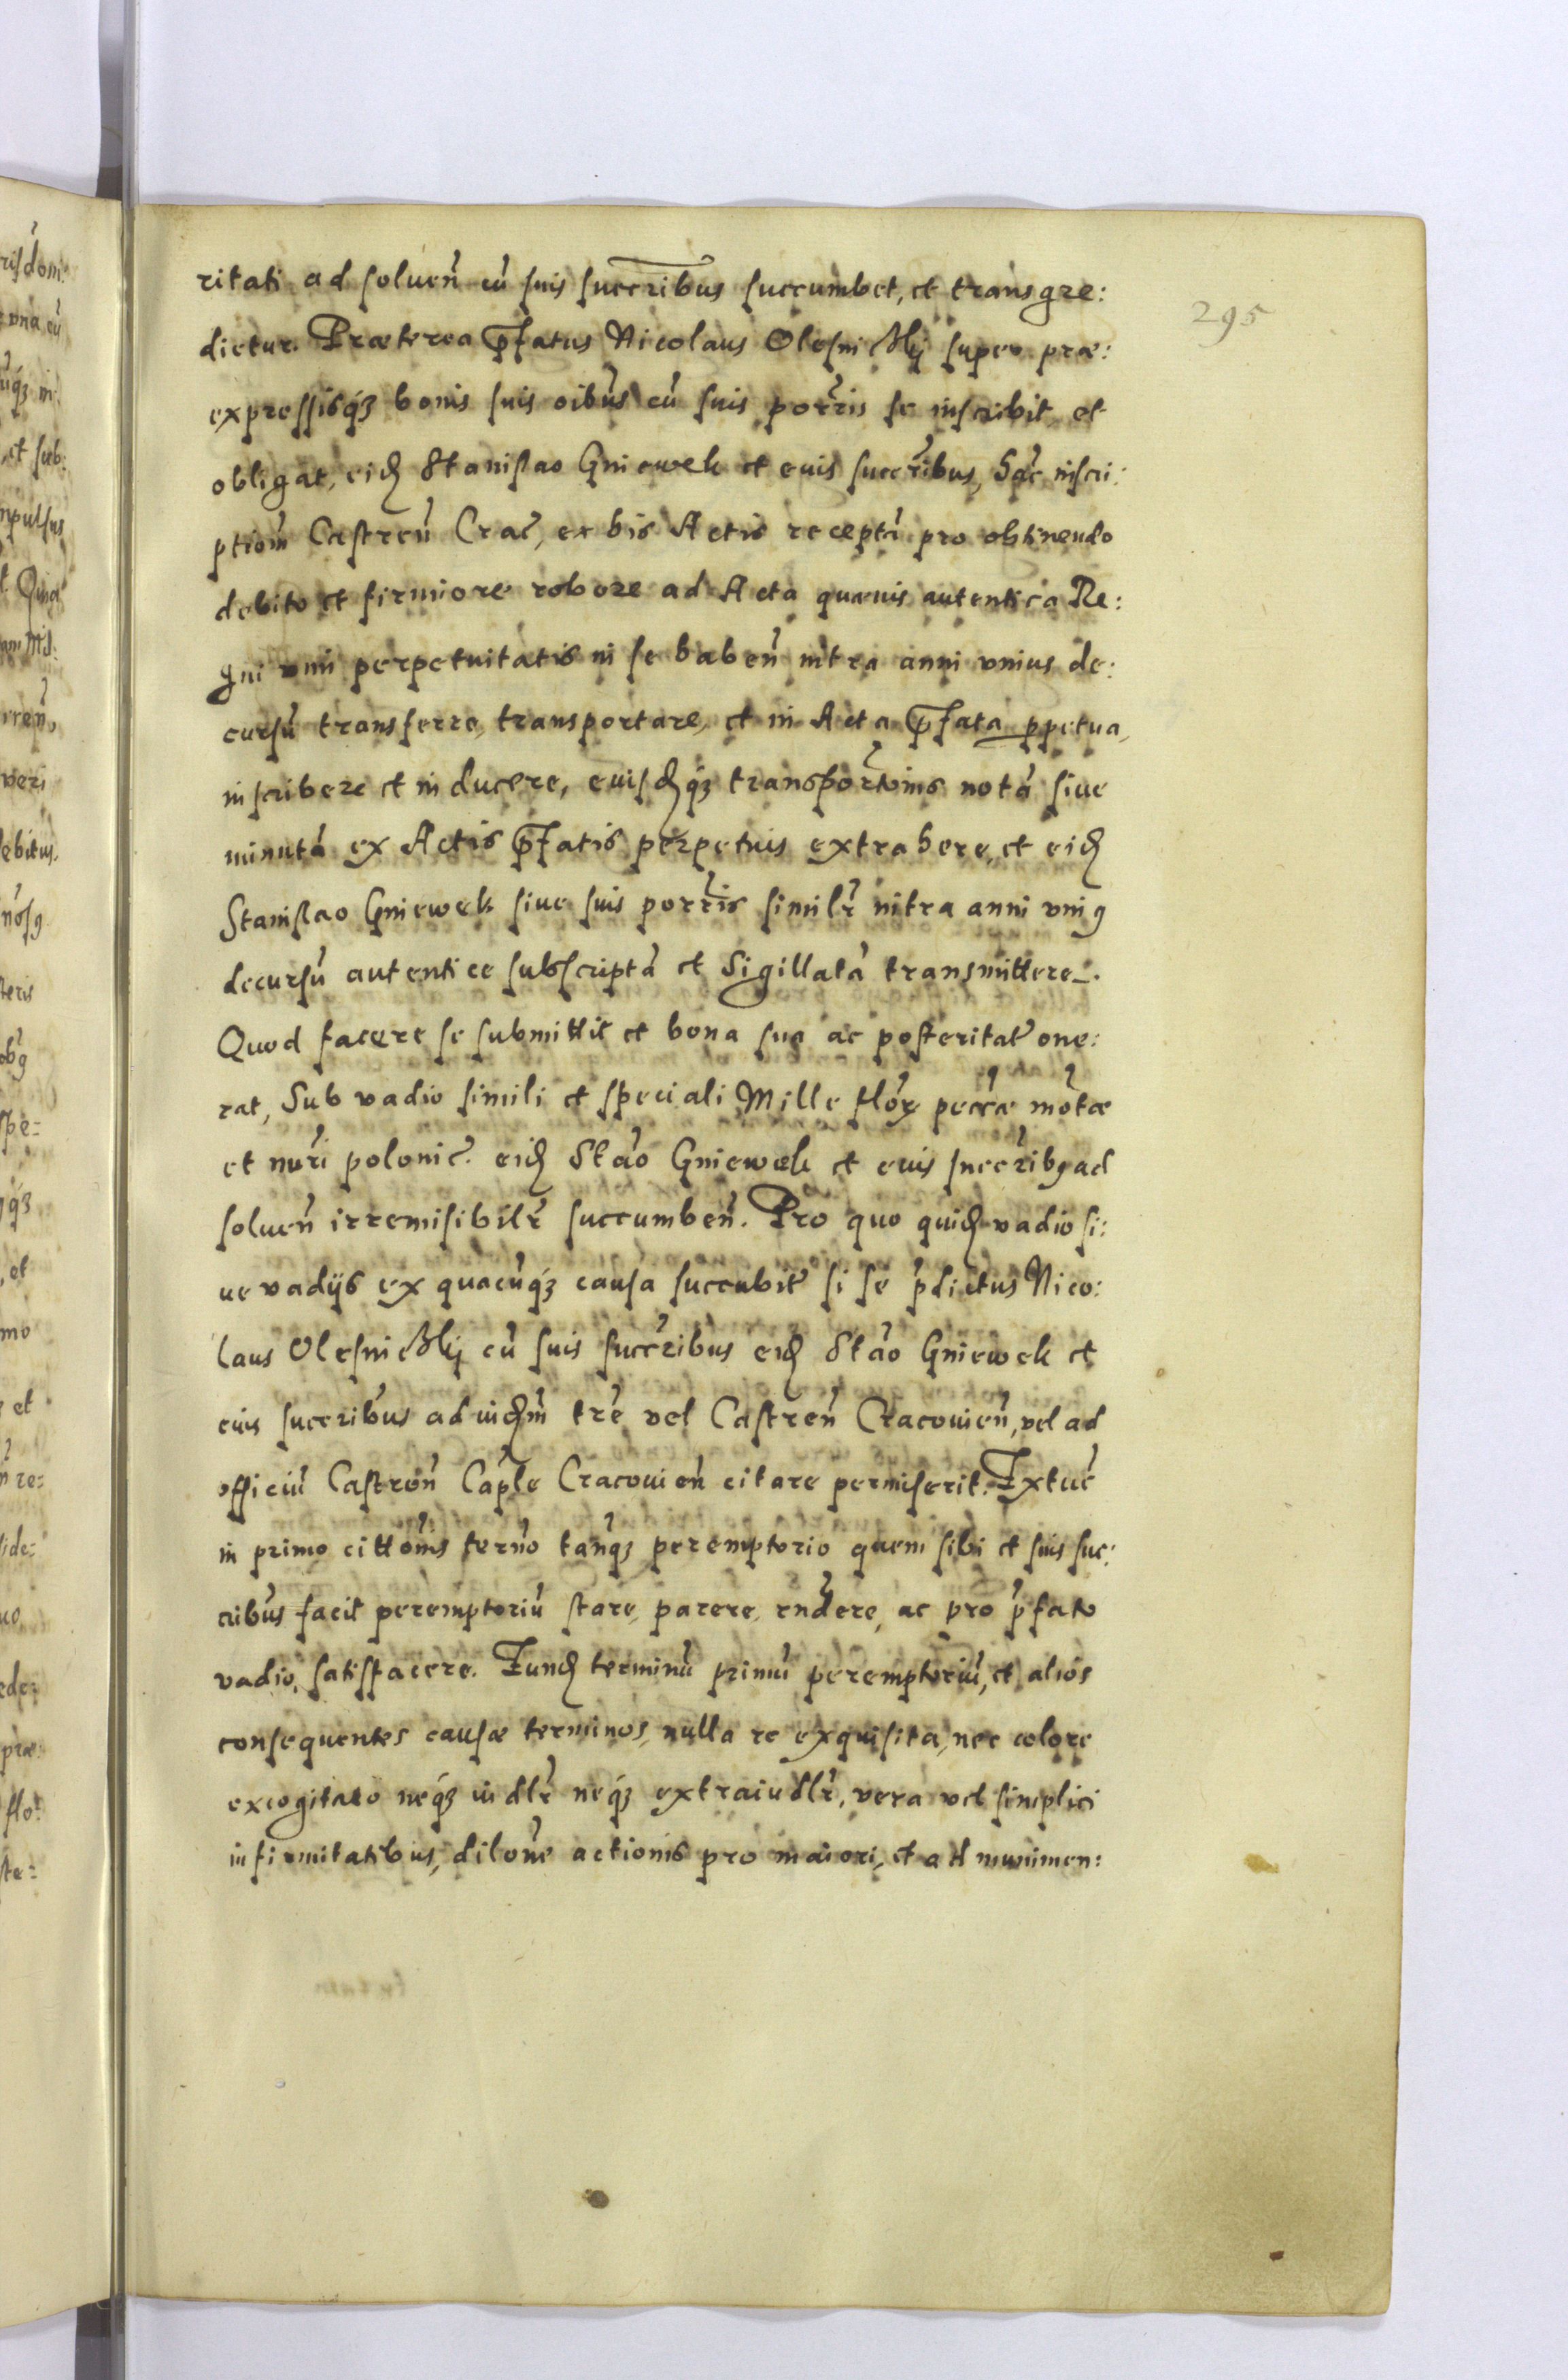 295
ritati ad soluen̄ cū suis succ̄ribus succumbet, et transgre:
dietur. Præterea p̄fatus Nicolaus Olesniczkij super præ:
expressisq́ꝫ bonis suis oībus cū suis port̄ris se inscribit et
obligat, eidꝫ Stanislao Gniewek et euis succ̄ribus, hāc inscri:
ptiom̄ Castren̄ Crac̄, ex his Actis receptā pro obtinendo
debito et firmiore robore ad Acta quæuis autentica Re:
gni vim perpetuitatis in se haben̄ intra anni vnius de:
cursū transferre, transportare, et in Acta p̄fata ꝑpetua,
inscribere et inducere, euisdꝫq́ꝫ transportōīnis notā siue
minutā ex Actis p̄fatis perpetuis extrahere, et eidꝫ
Stanislao Gniewek siue suis port̄ris similr̄ intra anni vniꝯ
decursū autentice subscriptā et Sigillatā transmittere.
Quod facere se submittit et bona sua ac posteritat̄ one:
rat, Sub vadio simili et speciali Mille flor̄ꝝ pec̄cæ mōtæ
et nūri polonic̄. eidꝫ Stāo Gniewek et euis succ̄ribꝯ ad
soluen̄ irremisibilr̄ succumben̄. Pro quo quidꝫ vadio si:
ue vadijs ex quacūq́ꝫ causa succubit̄ si se p̄dictus Nico:
laus Olesniczkij cū suis succ̄ribus eidꝫ Stāo Gniewek et
euis succribus ad iudꝫm̄ tr̄e vel Castren̄ Cracouien̄, vel ad
officiū Castren̄ Cāple Cracouien̄ citare permiserit. Extūc
in primo cittōnis tern̄o tānqꝫ peremptorio quem sibi et suis suc:
cribūs facit peremptoriū stare, parere, rn̄dere, ac pro p̄fato
vadio, satisfacere. Eundꝫ terminū primū peremptoriū, et alios
consequentes causæ terminos, nulla re exquisita, nec colore
excogitato neq́ꝫ iudlr̄ neq́ꝫ extraiudlr̄, vera vel simplici
infirmitatibus, dilōne actionis pro maiori, et ad munimen: